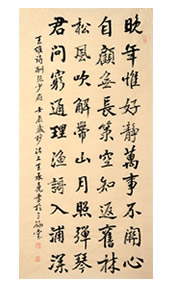 晚年惟好靜萬事不關心
自顧無長策空知返舊林
松風吹解帶山月照彈琴
君問窮通理漁謌入浦深
王維詩酬張少府 壬辰